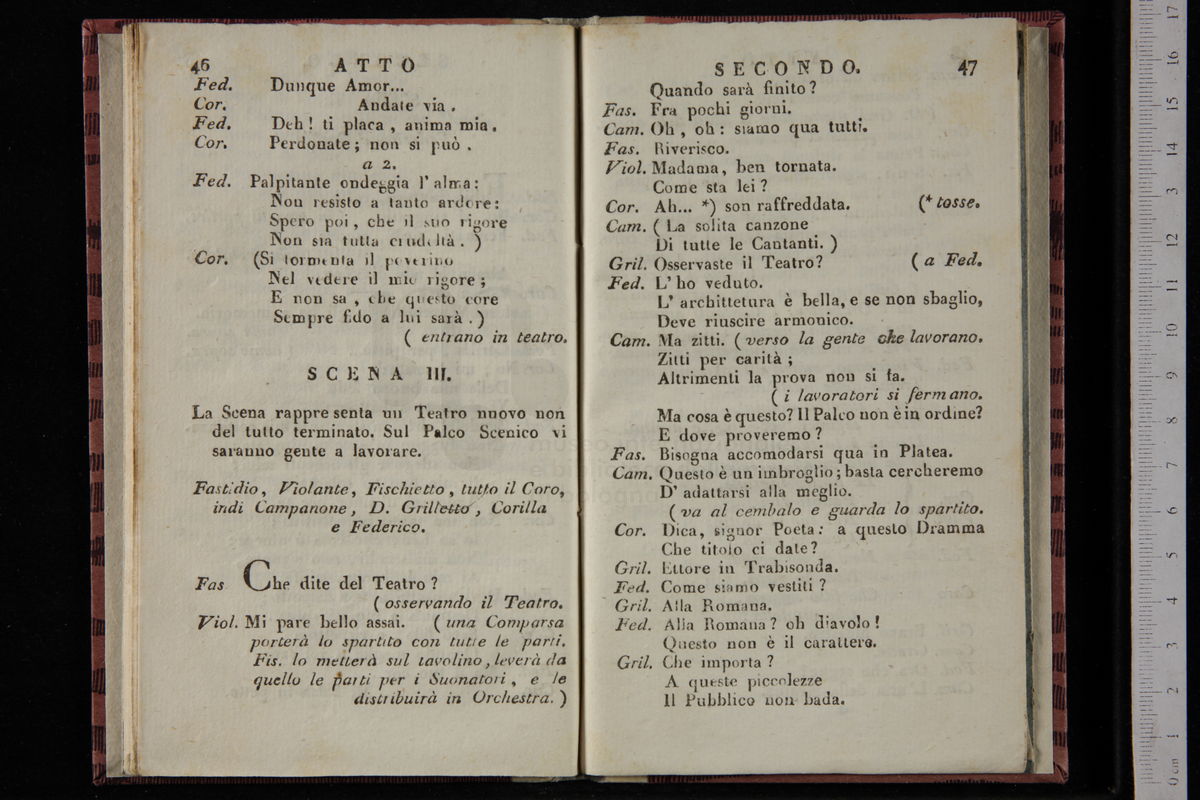 46 ATTO
Fed. Dunque Amor...
Cor. Andate via .
Fed. Deh ! ti placa , anima mia .
Cor. Perdonate ; non si può .
a 2.
Fed. Palpitante ondeggia l' alma :
Non resisto a tanto ardore :
Spero poi , che il suo rigore
Non sia tutta crudeltà . )
Cor. (Si tormenta il poverino
Nel vedere il mio rigore ;
E non sa , che questo core
Sempre fido a lui sarà . )
( entrano in teatro.
SCENA III.
La Scena rappresenta un Teatro nuovo non
del tutto terminato. Sul Palco Scenico vi
saranno gente a lavorare.
Fastidio , Violante , Fischietto , tutto il Coro,
indi Campanone , D. Grilletto , Corilla
e Federico.
Fas Che dite del Teatro ?
( osservando il Teatro.
Viol. Mi pare bello assai. ( una Comparsa
porterà lo spartito con tutte le parti.
Fis. lo metterà sul tavolino , leverà da
quello le parti per i Suonatori , e le
distribuirà in Orchestra. )
SECONDO. 47
Quando sarà finito ?
Fas. Fra pochi giorni.
Cam. Oh , oh : siamo qua tutti.
Fas. Riverisco.
Viol. Madama , ben tornata.
Come sta lei ?
Cor. Ah... *) son raffreddata. (* tosse.
Cam. ( La solita canzone
Di tutte le Cantanti. )
Gril. Osservaste il Teatro ? ( a Fed.
Fed. L' ho veduto.
L' archittetura è bella, e se non sbaglio,
Deve riuscire armonico.
Cam. Ma zitti. ( verso la gente che lavorano.
Zitti per carità ;
Altrimenti la prova non si fa.
( i lavoratori si fermano.
Ma cosa è questo? Il Palco non è in ordine?
E dove proveremo ?
Fas. Bisogna accomodarsi qua in Platea.
Cam. Questo è un imbroglio ; basta cercheremo
D' adattarsi alla meglio.
( va al cembalo e guarda lo spartito.
Cor. Dica, signor Poeta : a questo Dramma
Che titolo ci date ?
Gril. Ettore in Trabisonda.
Fed. Come siamo vestiti ?
Gril. Alla Romana.
Fed. Alla Romana ? oh diavolo !
Questo non è il carattere.
Gril. Che importa ?
A queste piccolezze
Il Pubblico non bada.
0 cm 1 2 3 4 5 6 7 8 9 10 11 12 13 14 15 16 17